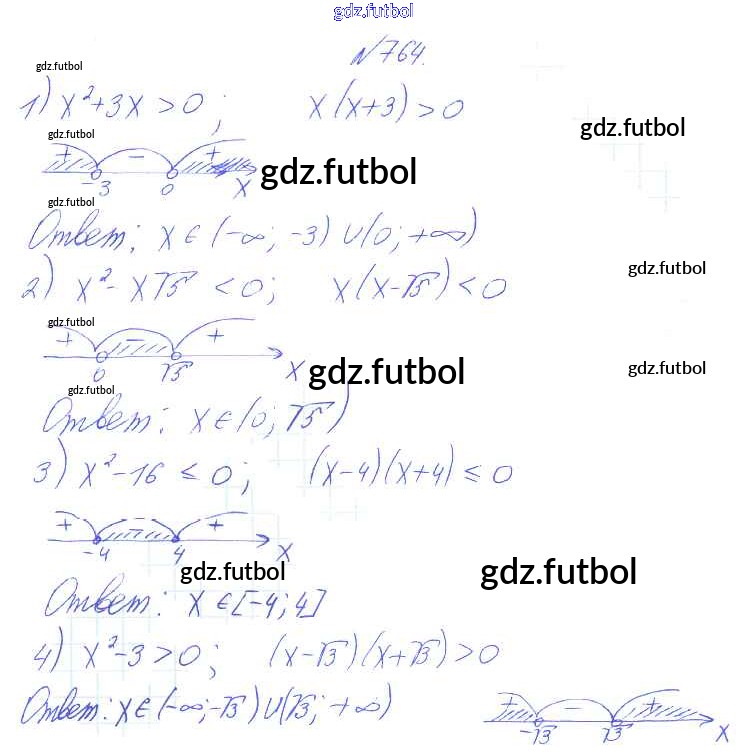 gdz.futbol
N764.
gdz.futbol
1) x²+3x>0; x(x+3)>0
gdz.futbol gdz.futbol
+ − +
-3 0 x gdz.futbol
gdz.futbol
Ответ: x∈(-∞; -3)∪(0; +∞)
gdz.futbol
2) x²-x√5<0; x(x-√5)<0
gdz.futbol
+ − +
0 √5 x gdz.futbol gdz.futbol
gdz.futbol
Ответ: x∈(0; √5)
3) x²-16≤0; (x-4)(x+4)≤0
+ − +
-4 4 x
gdz.futbol gdz.futbol
Ответ: x∈[-4; 4]
4) x²-3>0; (x-√3)(x+√3)>0
Ответ: x∈(-∞;-√3)∪(√3; +∞)
+ − +
-√3 √3 x